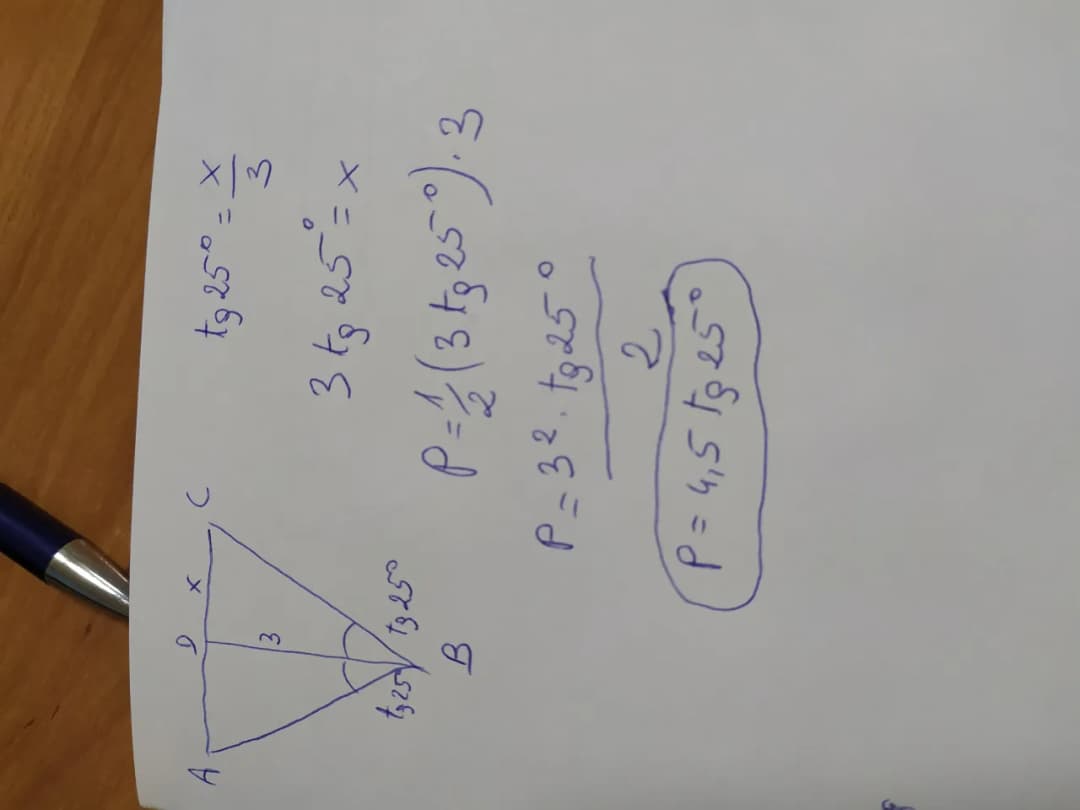 A D x C
3
tg 25 tg 25°
B
tg 25° = x/3
3 tg 25° = x
P = 1/2 (3 tg 25°) · 3
P = 3² · tg 25° / 2
P = 4,5 tg 25°